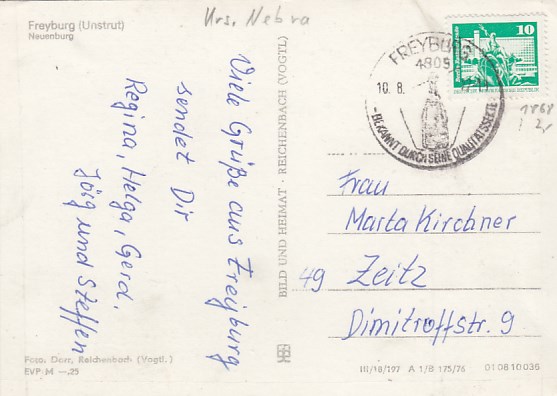 Freyburg (Unstrut)
Neuenburg
Krs. Nebra
Viele Grüße aus Freyburg
sendet Dir
Regina, Helga, Gerd,
Jörg und Steffen
BILD UND HEIMAT · REICHENBACH (VOGTL)
FREYBURG
4805
10.8.
- BEKANNT DURCH SEINE QUALITÄTSSEKTE
10
Frau
Marta Kirchner
49 Zeitz
Dimitroffstr. 9
Foto: Darr, Reichenbach (Vogtl.)
EVP M —,25
III/18/197 A 1/B 175/76 01 08 10 036